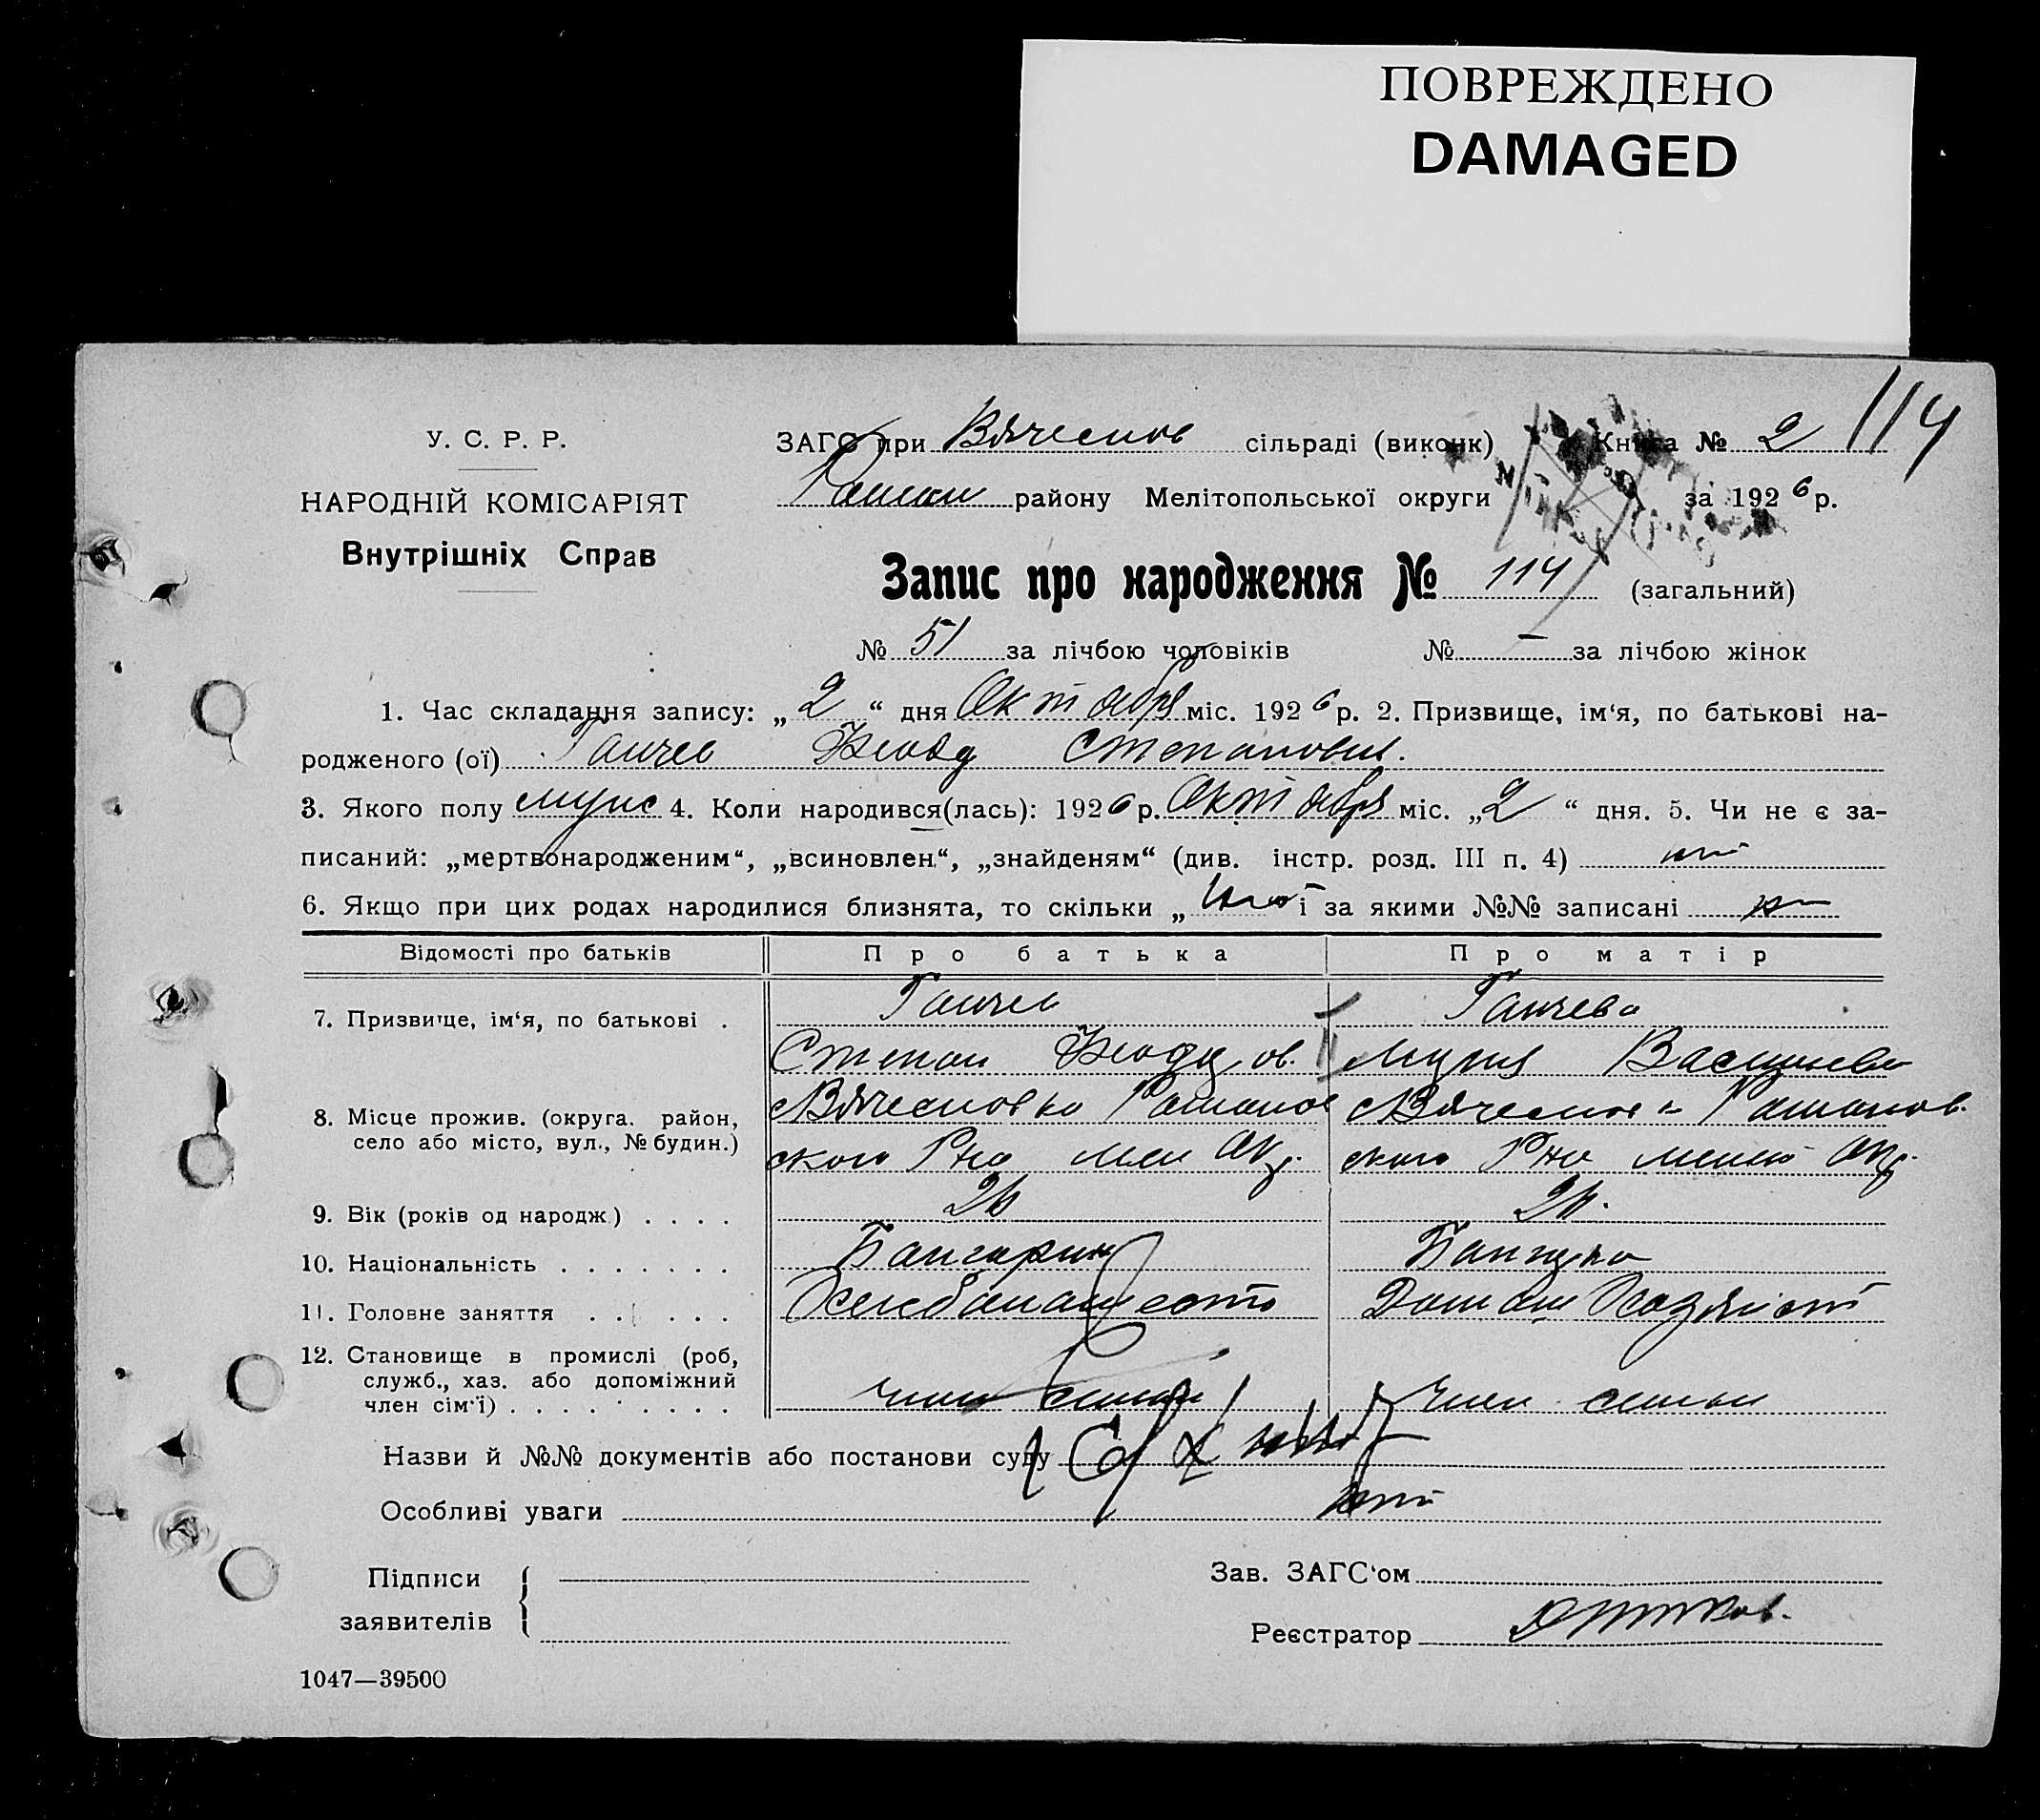 ПОВРЕЖДЕНО
DAMAGED
114
У. С. Р. Р.
НАРОДНІЙ КОМІСАРІЯТ
Внутрішніх Справ
ЗАГС при Вячеслов сільраді (виконк) Книга № 2
району Мелітопольської округи за 1926 р.
Запис про народження № 114 (загальний)
№ 51 за лічбою чоловіків № — за лічбою жінок
1. Час складання запису: „ 2 “ дня Октября міс. 1926 р. 2. Призвище, ім‘я, по батькові на-
родженого (ої) Ганчев Степанович.
3. Якого полу муж 4. Коли народився(лась): 1926 р. Октября міс. „ 2 “ дня. 5. Чи не є за-
писаний: „мертвонародженим“, „всиновлен“, „знайденям“ (див. інстр. розд. III п. 4) нет
6. Якщо при цих родах народилися близнята, то скільки „ і за якими №№ записані
Відомості про батьків Про батька Про матір
7. Призвище, ім‘я, по батькові . Ганчев Ганчева
Степан Мария Васильева
8. Місце прожив. (округа. район, село або місто, вул., № будин.) Вячеславка Романов Вячеславка Романов.
ского Р-на мел Окр. ского Р-на Окр.
9. Вік (років од народж.) . . . .
10. Національність . . . . . . . Болгарин
11. Головне заняття . . . . . Хлебопашество Домаш Хозяйст
12. Становище в промислі (роб, служб., хаз. або допоміжний член сім‘ї) . . . . . . . . . член семьи член семьи
Назви й №№ документів або постанови суду
Особливі уваги нет
Підписи заявителів
Зав. ЗАГС‘ом
Реєстратор
1047—39500